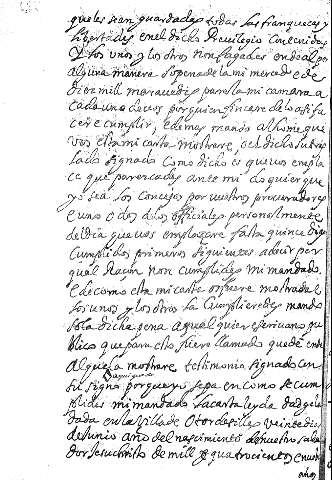 que les sean guardadas todas las franqueças y
libertades en el dicho Previlegio contenidas
Y los unos y los otros non fagades ende al por
alguna manera so pena de la mi merced e de
diez mill maravedis para la mi camara a
cada uno de vos por quien fincare de lo asi fa
cer e cumplir, e demas mando al home que
vos esta mi carta mostrare, o el dicho su tras
lado signado como dicho es que vos empla
ce que parezcades ante mi do quier que
yo sea los concejos por vuestros procuradores
e uno o dos de los officiales personalmente
del dia que vos emplazare fasta quince dias
cumplidos primeros siguientes a decir por
qual raçon non cumplides mi mandado,
e de como esta mi carta os fuere mostrada e
los unos y los otros la cumplieredes mando
so la dicha pena a qual quier escrivano pu
blico que para esto fuere llamado que dé ende
al que la mostrare testimonio signado con
su signo porque yo sepa en como se cum
plides mi mandado la carta leyda dadgela
dada en la Villa de Otordesillas veinte dias
de Junio año del nascimiento de nuestro salva
dor Jesuchristo de mill y quatrocientos e
años